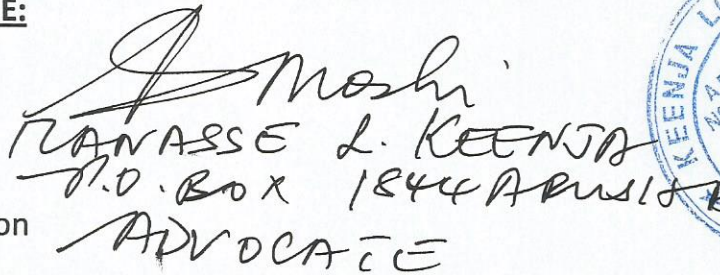 E:
Moshi
MANASSE L. KEENJA
P.O. BOX 1844 ARUSHA
on
ADVOCATE
KEENJA